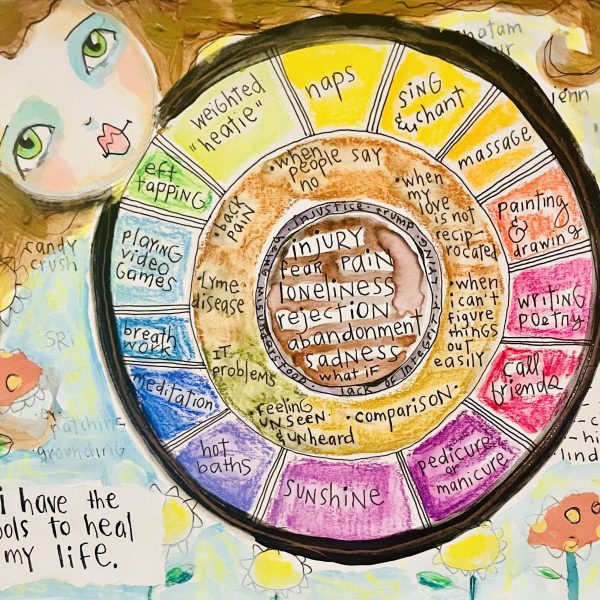 weighted
"heatie"
naps
sing
& chant
massage
painting
&
drawing
writing
poetry
call
friends
pedicure
or
manicure
sunshine
hot
baths
meditation
breath
work
playing
video
games
eft
tapping
• when
people say
no
• when
my
love
is not
recip-
rocated
• when
i can't
figure
things
out
easily
• comparison •
feeling
unseen
& unheard
IT
problems
• Lyme
disease
• back
pain
• injustice • trump • lying • lack of integrity • being misunderstood
injury
fear pain
loneliness
rejection
abandonment
sadness
what if
natam
ur
jenn
candy
crush
SRi
matching
• grounding
i have the
ools to heal
my life.